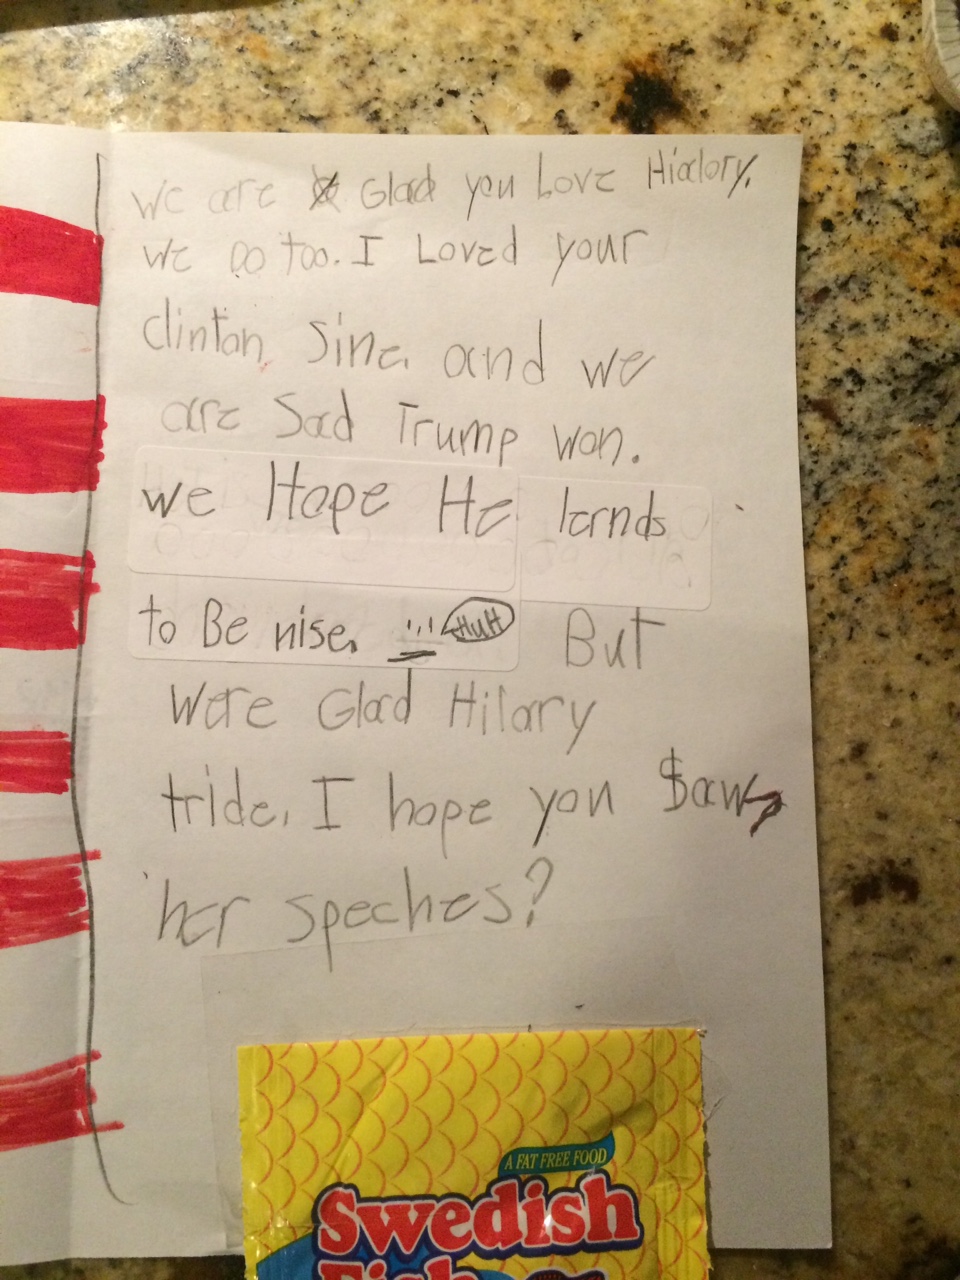 We are Glad you Love Hialory.
we Do too. I Loved your
clinton sine. and we
are Sad Trump won.
we Hope He lernds
to Be nise. HuH But
were Glad Hilary
tride. I hope you $aw
her speches?
A FAT FREE FOOD
Swedish
Fish